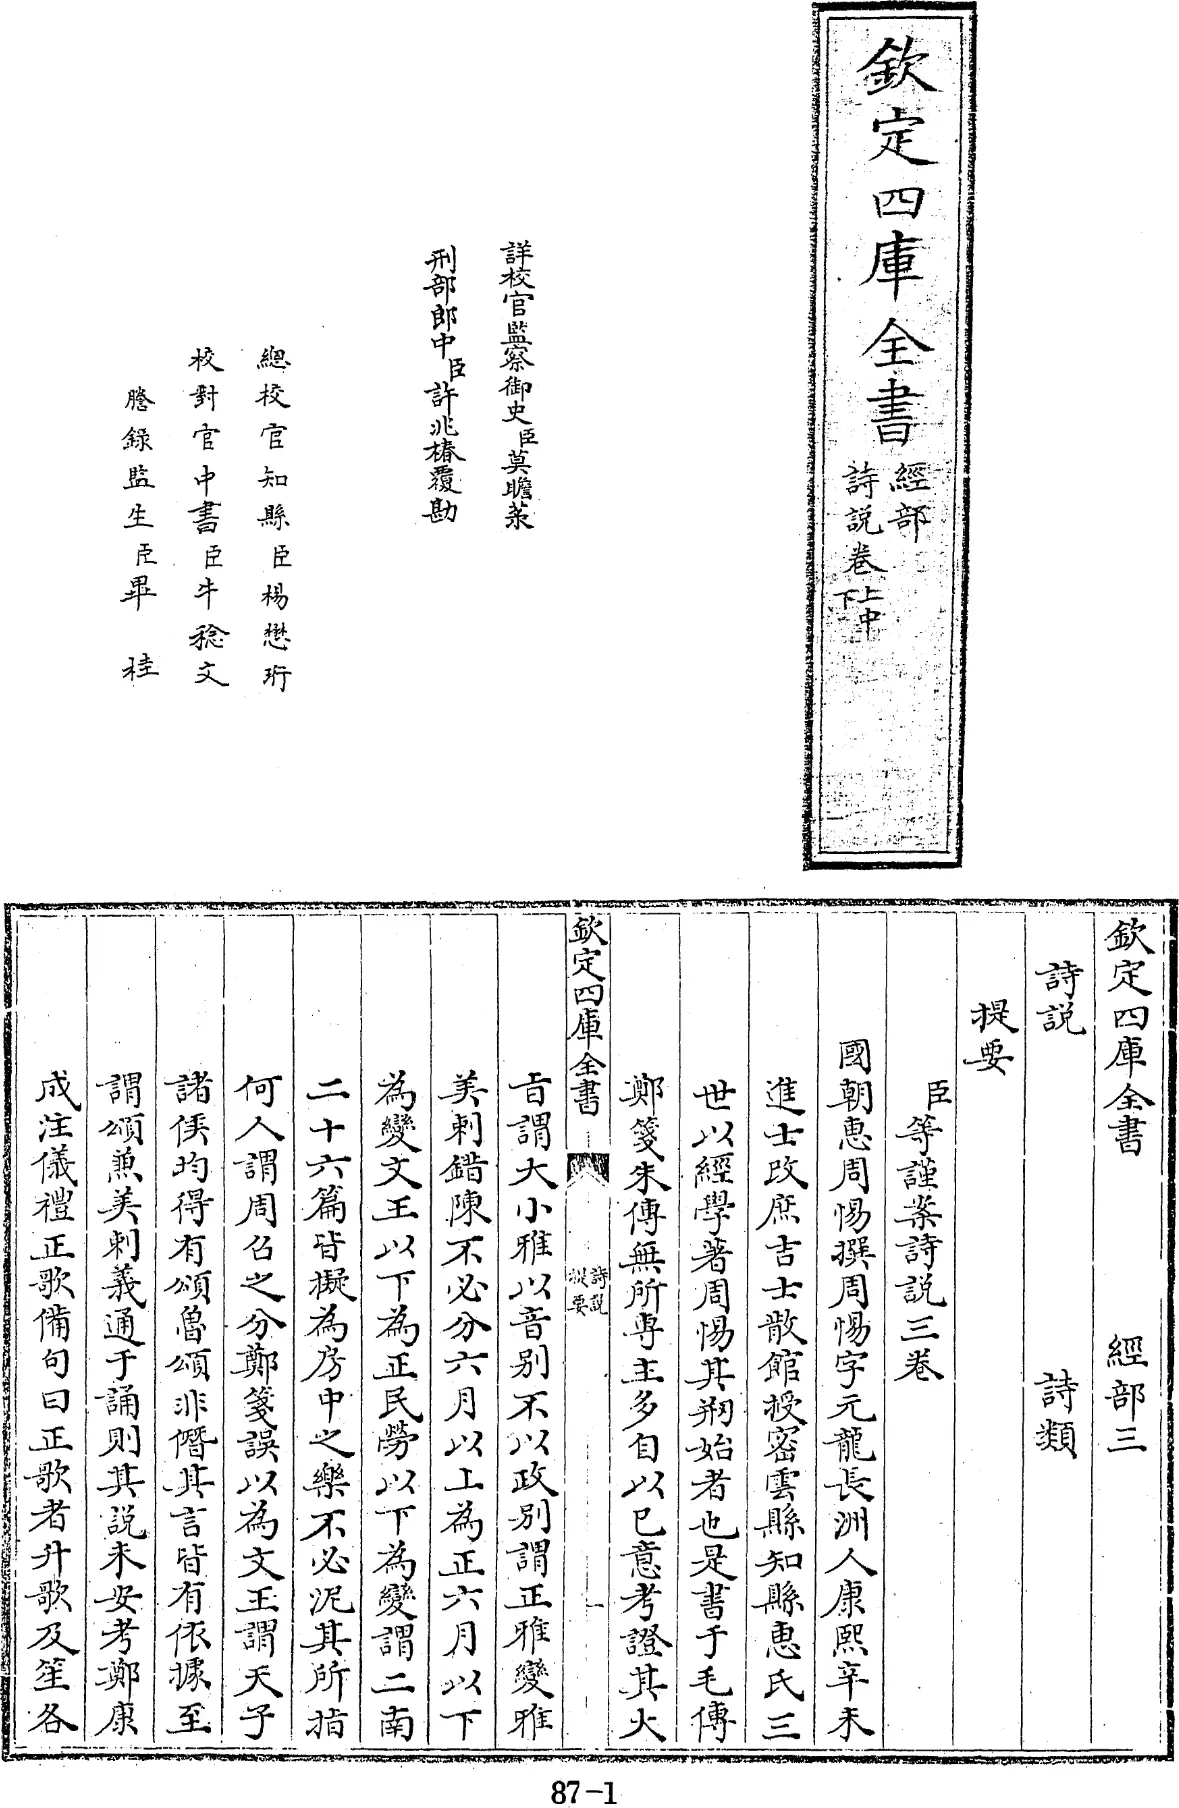 欽定四庫全書
經部
詩説卷上中下
詳校官監察御史臣莫瞻菉
刑部郎中臣許兆椿覆勘
總校官知縣臣楊懋珩
校對官中書臣牛稔文
謄錄監生臣畢桂
欽定四庫全書 經部三
詩説 詩類
提要
臣等謹案詩説三卷
國朝惠周惕撰周惕字元龍長洲人康熙辛未
進士改庶吉士散館授密雲縣知縣惠氏三
世以經學著周惕其剏始者也是書于毛傳
鄭箋朱傳無所專主多自以已意考證其大
欽定四庫全書 詩説 提要 一
旨謂大小雅以音别不以政别謂正雅變雅
美刺錯陳不必分六月以上為正六月以下
為變文王以下為正民勞以下為變謂二南
二十六篇皆擬為房中之樂不必泥其所指
何人謂周召之分鄭箋誤以為文王謂天子
諸侯均得有頌魯頌非僭其言皆有依據至
謂頌兼美刺義通于誦則其説未安考鄭康
成注儀禮正歌備句曰正歌者升歌及笙各
87-1